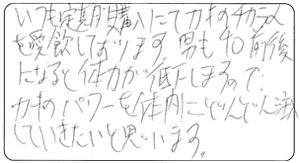 いつも定期購入にてカキのチカラ
を愛飲しております。男も40前後
になると体力が低下しますので、
カキのパワーを体内にどんどん
していきたいと思います。